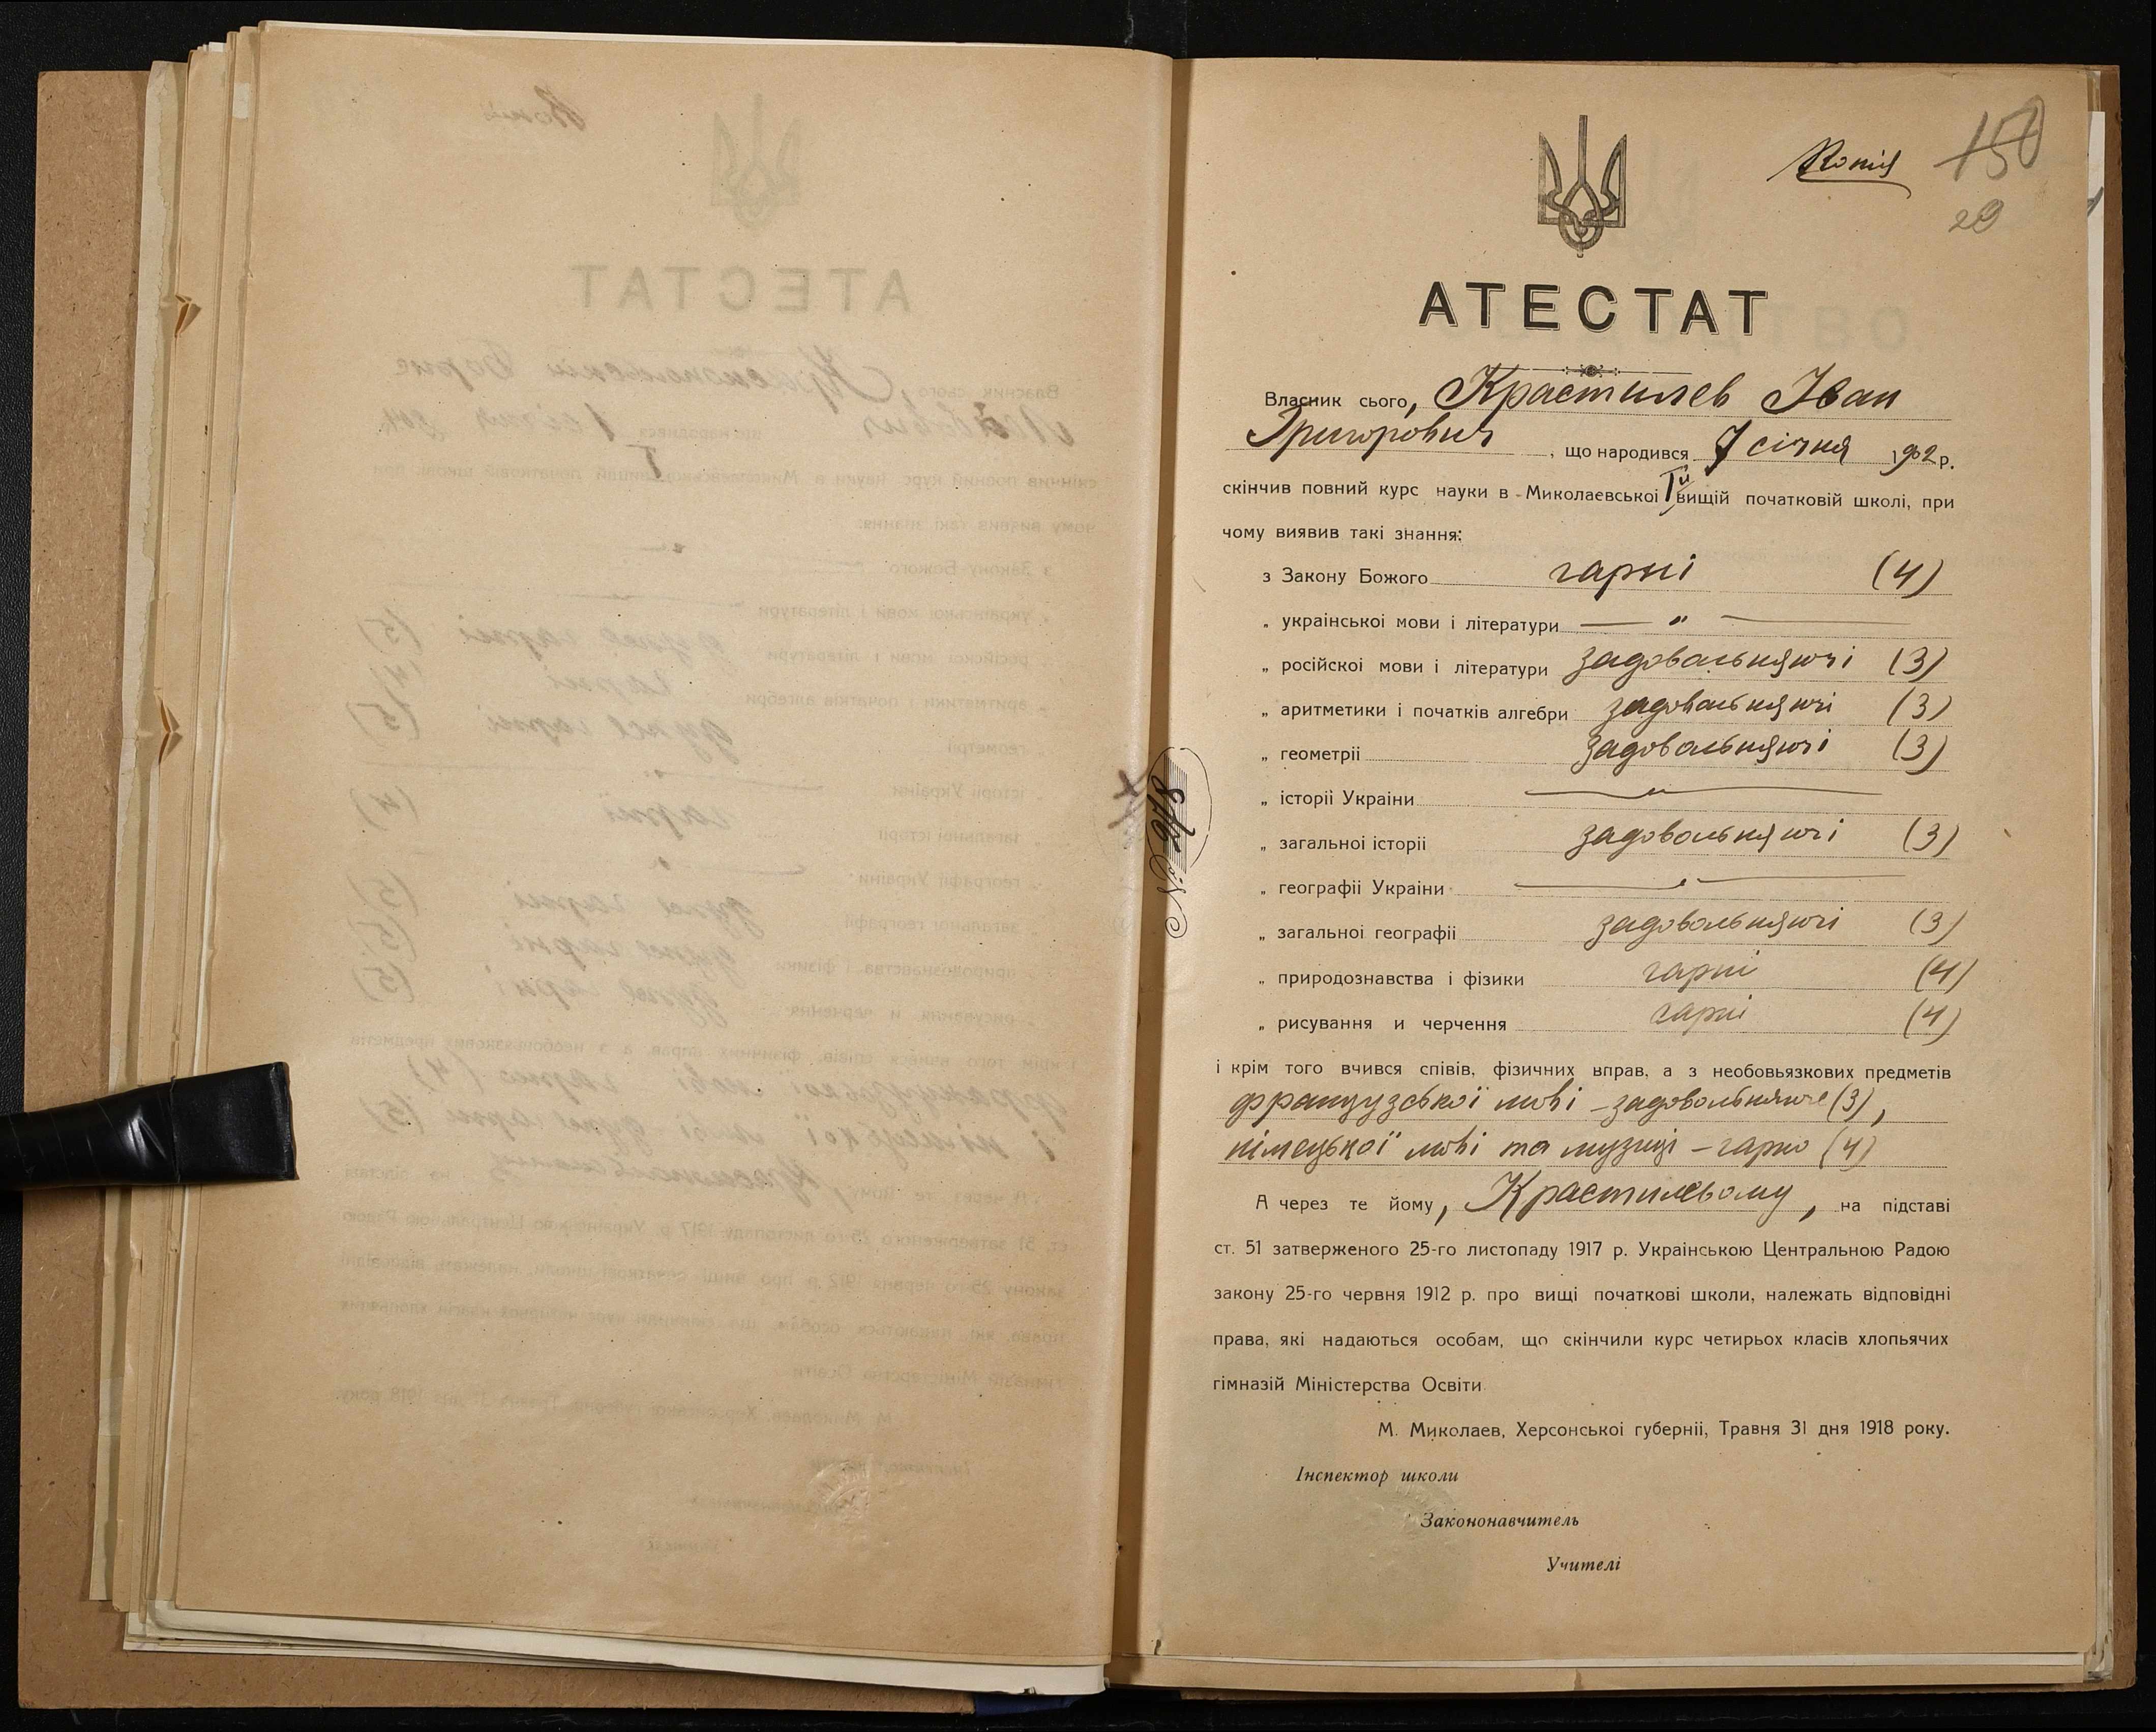 Копія
150
20
АТЕСТАТ
Власник сього, Крастилев Іван
Григорович, що народився 7 січня 1902 р.
скінчив повний курс науки в Миколаевськоі Iй вищій початковій школі, при
чому виявив такі знання:
з Закону Божого гарні (4)
„ украінськоі мови і літератури — „ —
„ російскоі мови і літератури задовальняючі (3)
„ аритметики і початків алгебри задовальняючі (3)
„ геометріі задовальняючі (3)
„ історіі Украіни — „ —
„ загальноі історіі задовольняючі (3)
„ географіі Украіни — „ —
„ загальноі географіі задовольняючі (3)
„ природознавства і фізики гарні (4)
„ рисування и черчення гарні (4)
і крім того вчився співів, фізичних вправ, а з необовьязкових предметів
французської мові – задовольняюче (3),
німецької мові та музиці – гарно (4)
А через те йому, Крастилевому, на підставі
ст. 51 затверженого 25-го листопаду 1917 р. Украінською Центральною Радою
закону 25-го червня 1912 р. про вищі початкові школи, належать відповідні
права, які надаються особам, що скінчили курс четирьох класів хлопьячих
гімназій Міністерства Освіти.
М. Миколаев, Херсонськоі губерніі, Травня 31 дня 1918 року.
Інспектор школи
Закононавчитель
Учителі